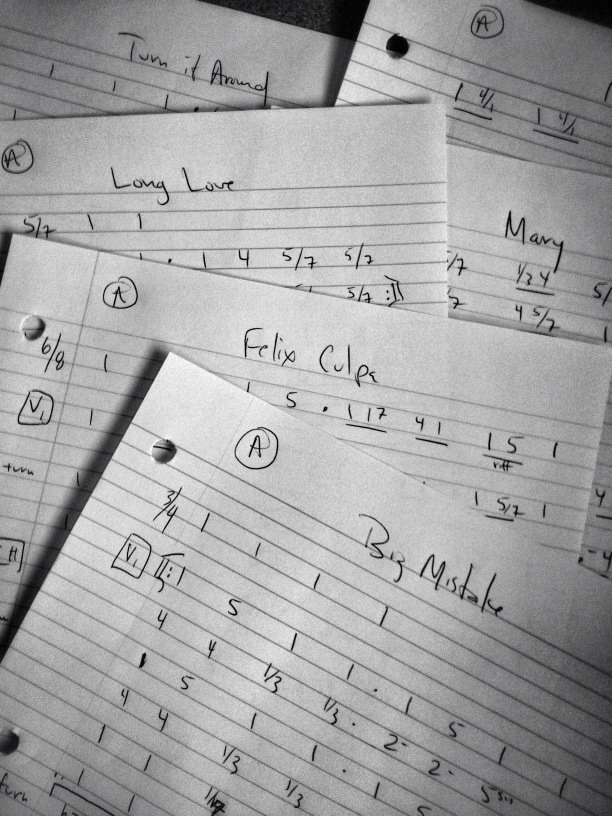 Turn it Around
1 1 1
A
1 4/1 1 4/1
A
Long Love
5/7 1 1
1 . 1 4 5/7 5/7
5/7 :]
Mary
1/3 4 5/
4 5/7
A
Felix Culpa
6/8 1
V1 1
1 5 . 1 17 4 1 1 5 1
riff
turn 1
1 5/7 1
A
Big Mistake
3/4 1 1 1 1
V1 [: 1 5 1 1 . 1 5 1 1
4 4 1/3 1/3 . 2- 2- 5sus
1 5 1 1 . 1 5
4 4 1/3 1/3
1 1
turn 1 1